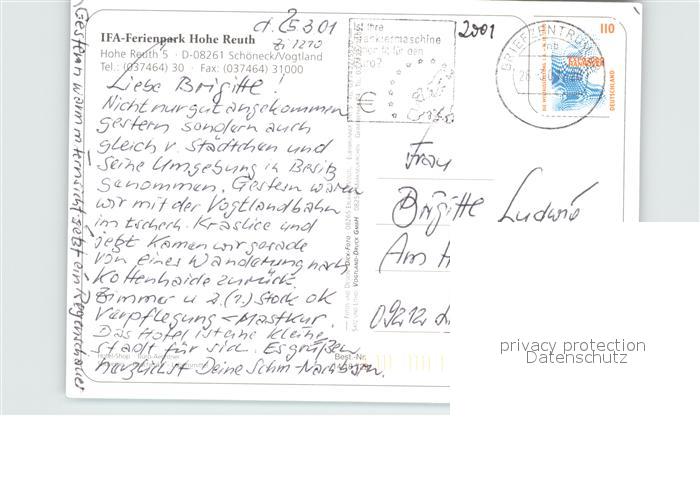 d. 25.3.01
2001
IFA-Ferienpark Hohe Reuth
Zi 1270
Hohe Reuth 5 · D-08261 Schöneck/Vogtland
Tel.: (037464) 30 · Fax: (037464) 31000
Liebe Brigitte!
Nicht nur gut angekommen
gestern sondern auch
gleich v. Städtchen und
seine Umgebung in Besitz
genommen. Gestern waren
wir mit der Vogtlandbahn
im tschech. Kraslice und
jetzt kamen wir gerade
von eines Wanderung nach
Kottenhaide zurück.
Zimmer u 2. (1.) Stock ok
Verpflegung - Mastkur.
Das Hotel ist eine kleine
Stadt für sich. Es grüßen
herzlichst Deine
Gestern warm
jetzt ein Regenschauer
Ihre
für den
€
BRIEFZENTRUM
110
DEUTSCHLAND
Frau
Brigitte Ludwig
Am
Best-Nr.
privacy protection
Datenschutz